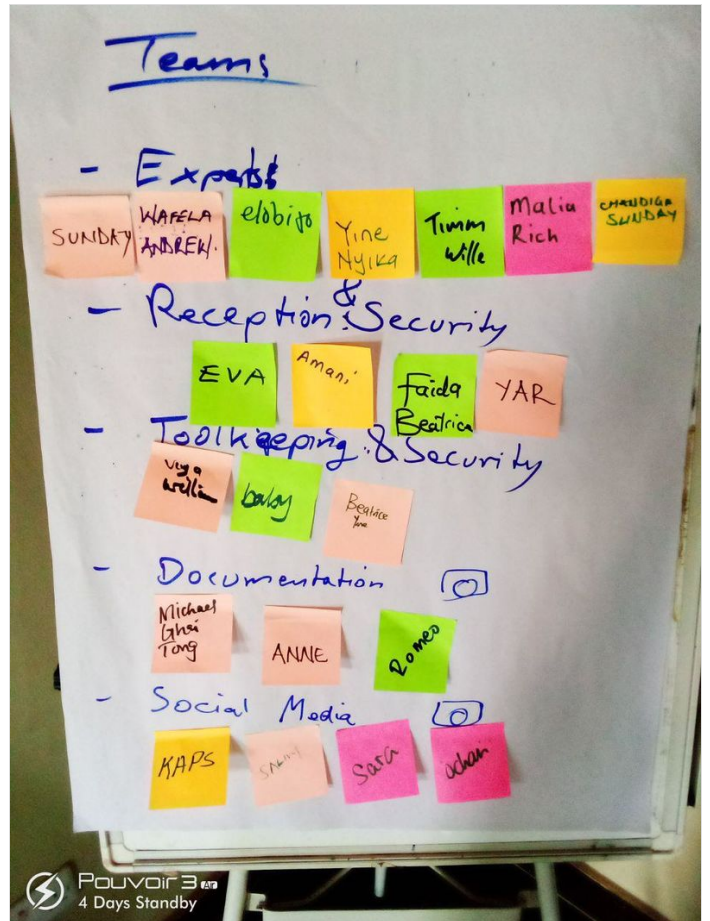 Teams
- Experts
SUNDAY
WAFELA
ANDREW.
elobijo
Yine
Nyika
Timm
Wille
Malia
Rich
CHANDIGA
SUNDAY
- Reception & Security
EVA
Amani
Faida
Beatrice
YAR
- Toolkeeping & Security
william
baby
Beatrice
- Documentation
Michael
Ghai
Tong
ANNE
Romeo
- Social Media
KAPS
Sara
Pouvoir 3 Air
4 Days Standby